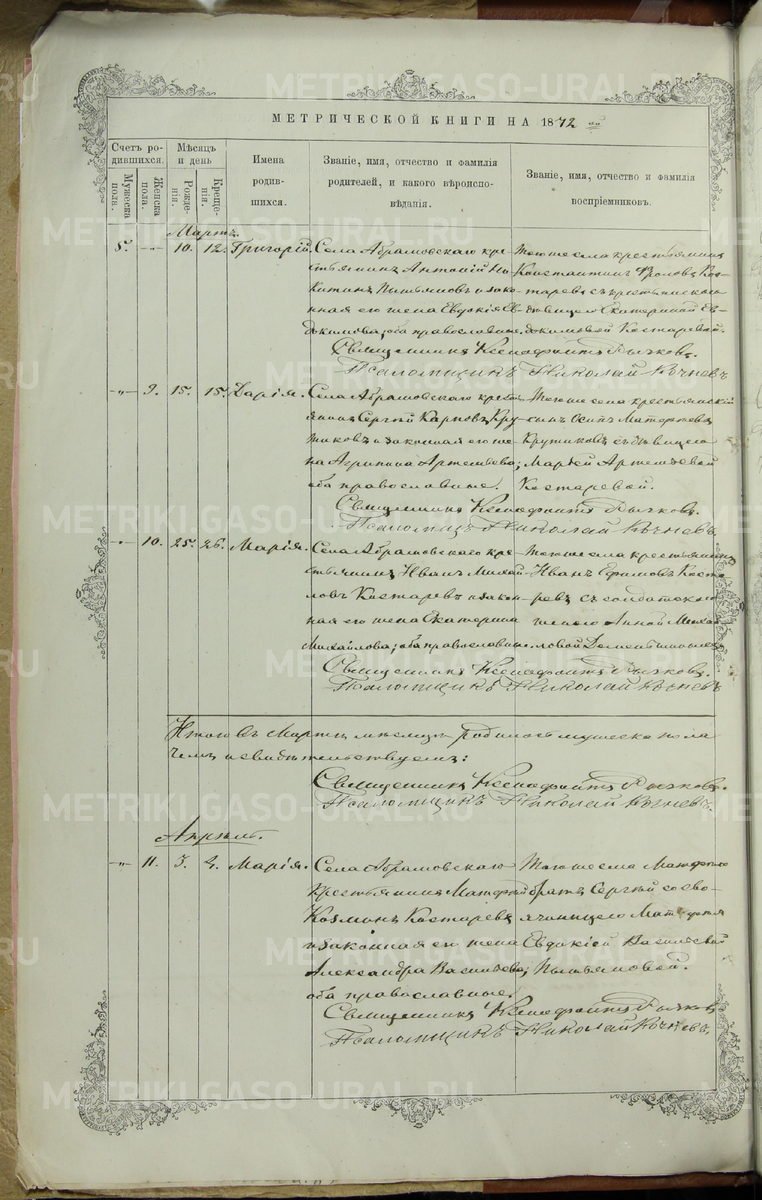 МЕТРИЧЕСКОЙ КНИГИ НА 1872
Счетъ ро-
дившихся.
Мѣсяцъ
и день
Имена
родив-
шихся.
Званіе, имя, отчество и фамилія
родителей, и какого вѣроиспо-
вѣданія.
Званіе, имя, отчество и фамилія
воспріемниковъ.
Мужеска
пола.
Женска
пола.
Рожде-
нія.
Креще-
нія.
Мартъ.
8. 10. 12. Григорій.
Села Абрамовскаго кре-
стьянинъ Антоній Ни-
китинъ и зако-
нная его жена Евдокія Ев-
докимова; оба православные.
Тогоже села крестьянинъ
Константинъ Фроловъ Кос-
таревъ съ
дѣвицею Екатериной Ев-
докимовой Костаревой.
Священникъ Ксенофонтъ
Псаломщикъ Николай
9. 15. 15. Дарія.
Села Абрамовскаго кресть-
янинъ Сергѣй Карповъ Кру-
тиковъ и законная его же-
на Агрипина Артемьева;
оба православные.
Тогоже села крестьянскій
сынъ Осипъ Матфеевъ
Крутиковъ съ дѣвицею
Марѳой Артемьевой
Костаревой.
Священникъ Ксенофонтъ
Псаломщикъ Николай
10. 25. 26. Марія.
Села Абрамовскаго кре-
стьянинъ Иванъ Михай-
ловъ Костаревъ и закон-
ная его жена Екатерина
Михайлова; оба православные.
Тогоже села крестьянинъ
Иванъ Ефимовъ Коста-
ревъ съ солдатскою
женою Анной Михай-
ловой
Священникъ Ксенофонтъ
Псаломщикъ Николай
Итого въ Мартѣ мѣсяцѣ родилось мужеска пола
чемъ и свидѣтельствуемъ:
Священникъ Ксенофонтъ
Псаломщикъ Николай
Апрѣль.
11. 3. 4. Марія.
Села Абрамовскаго
крестьянинъ Матфей
Козминъ Костаревъ
и законная его жена
Александра Васильева;
оба православные.
Тогоже села Матфея
братъ Сергѣй со сво-
яченицею Матфея
Евдокіей Васильевой
Священникъ Ксенофонтъ
Псаломщикъ Николай
METRIKI.GASO-URAL.RU